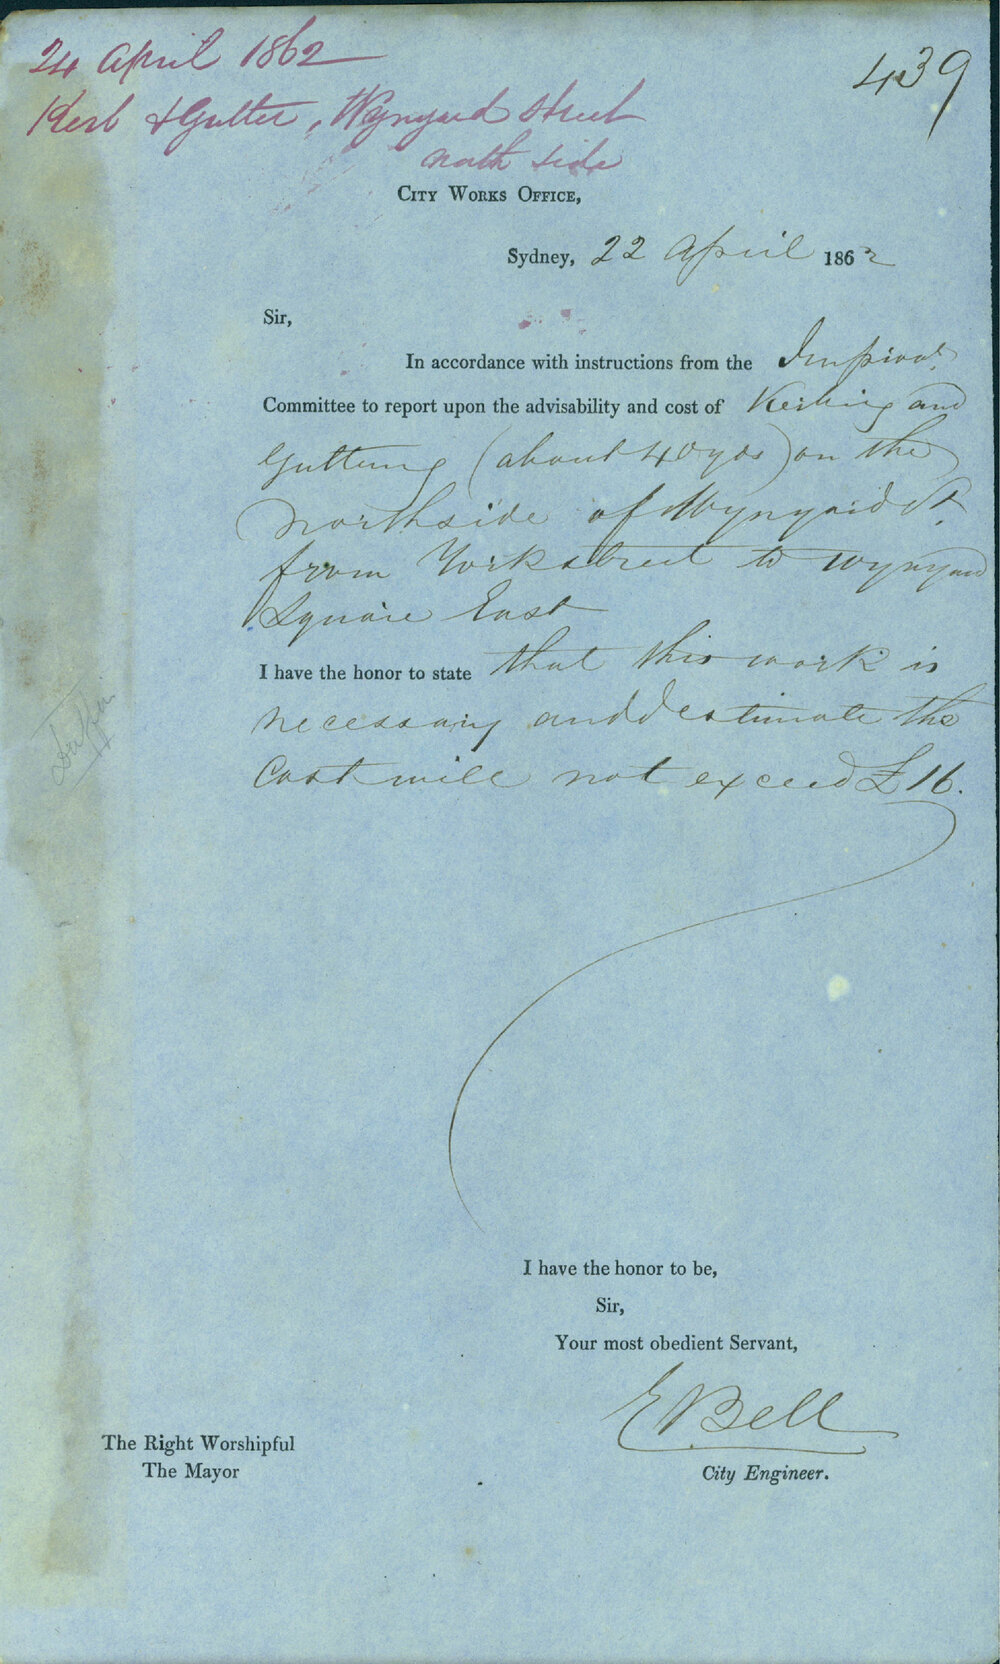 24 April 1862
439
Kerb & Gutter, Wynyard Street
north side
CITY WORKS OFFICE,
Sydney, 22 April 1862
Sir,
In accordance with instructions from the Improvt.
Committee to report upon the advisability and cost of Kerbing and
Guttering (about 40 yds) on the
north side of Wynyard St.
from York street to Wynyard
Square East
I have the honor to state that this work is
necessary and I estimate the
Cost will not exceed £16.
I have the honor to be,
Sir,
Your most obedient Servant,
E Bell
City Engineer.
The Right Worshipful
The Mayor